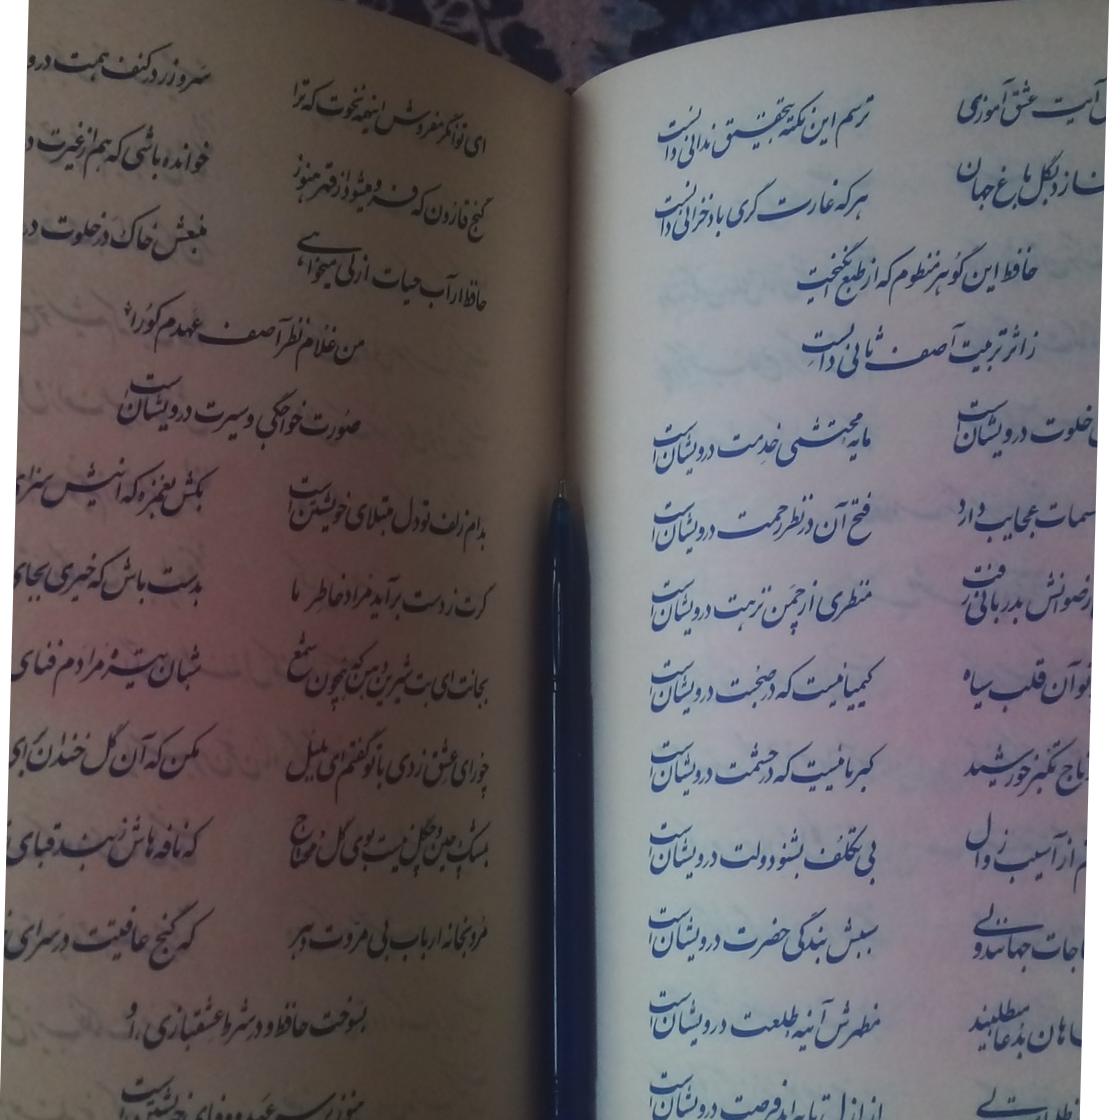 آیت عشق آموزی ترسم این نکته بتحقیق ندانی دانست
بگل باغ جهان هر که غارت گری باد خزانی دانست
حافظ این گوهر منظوم که از طبع انگیخت
ز اثر تربیت آصف ثانی دانست
خلوت درویشانست مایه محتشمی خدمت درویشانست
عجایب دارد فتح آن در نظر رحمت درویشانست
رضوانش بدربانی رفت منظری از چمن نزهت درویشانست
آن قلب سیاه کیمیائیست که در صحبت درویشانست
تاج تکبر خورشید کبریائیست که در حشمت درویشانست
از آسیب زوال بی تکلف بشنو دولت درویشانست
حاجات جهانند ولی سببش بندگی حضرت درویشانست
بدعا میطلبند مظهرش آئینه طلعت درویشانست
ولی از ازل تا به ابد فرصت درویشانست
ای توانگر مفروش اینهمه نخوت که ترا سر و زر در کنف همت
گنج قارون که فرو میشود از قهر هنوز خوانده باشی که هم از غیرت
حافظ ار آب حیات ازلی میخواهی منبعش خاک در خلوت
من غلام نظر آصف عهدم کو را
صورت خواجگی و سیرت درویشانست
بدام زلف تو دل مبتلای خویشتن است بکش بغمزه که اینش سزای
گرت ز دست برآید مراد خاطر ما بدست باش که خیری بجای
بجانت ای بت شیرین من که همچون شمع شبان تیره مرادم فنای
چو رای عشق زدی با تو گفتم ای بلبل مکن که آن گل خندان برای
بمشک چین و چگل نیست بوی گل محتاج که نافه هاش ز بند قبای
مرو بخانه ارباب بی مروت دهر که گنج عافیتت در سرای
بسوخت حافظ و در شرط عشقبازی او
هنوز بر سر عهد و وفای خویشتن است